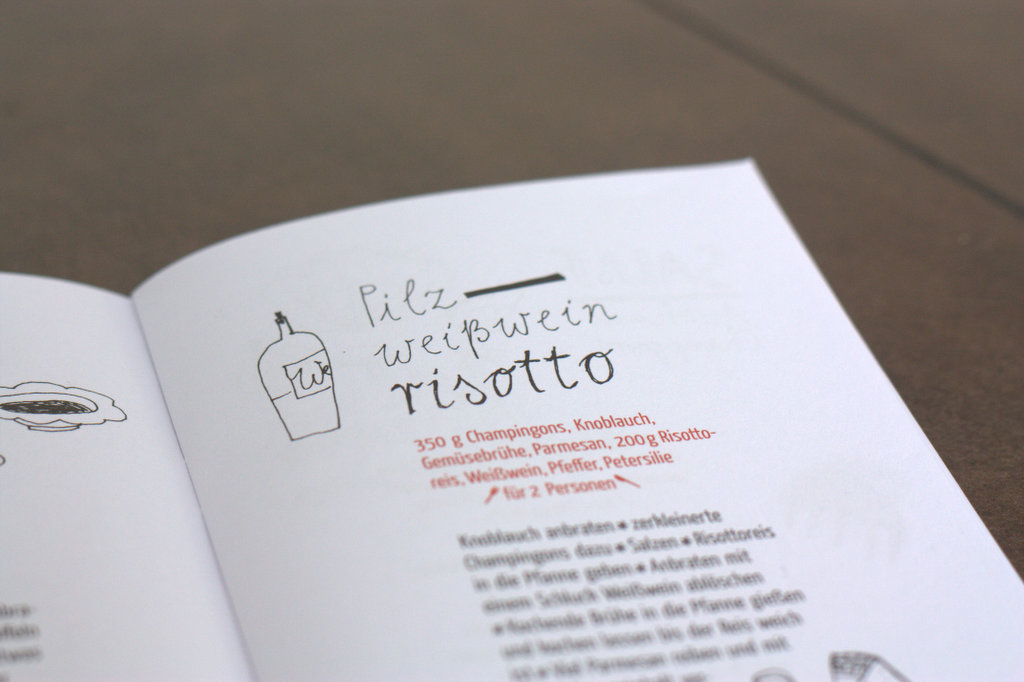 We
Pilz
weißwein
risotto
350 g Champingons, Knoblauch,
Gemüsebrühe, Parmesan, 200 g Risotto-
reis, Weißwein, Pfeffer, Petersilie
für 2 Personen
Knoblauch anbraten • zerkleinerte
Champingons dazu • Salzen • Risottoreis
in die Pfanne geben • Anbraten mit
einem Schluck Weißwein ablöschen
• Kochende Brühe in die Pfanne gießen
und kochen lassen bis der Reis weich
ist • Parmesan reiben und mit